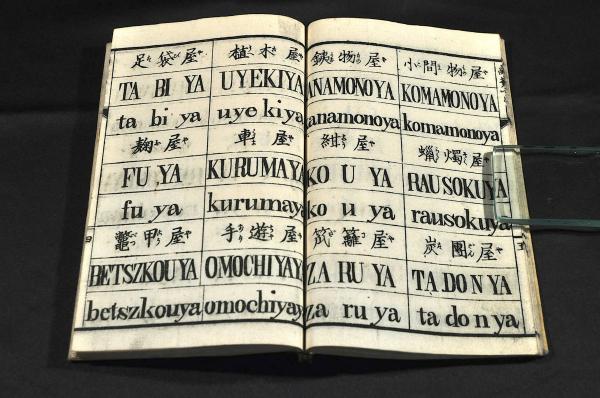 足袋屋 植木屋 銕物屋 小間物屋
TA BI YA UYEKIYA ANAMONOYA KOMAMONOYA
ta bi ya uyekiya anamonoya komamonoya
屋 車屋 紺屋 蠟燭屋
FU YA KURUMAYA KO U YA RAUSOKUYA
fu ya kurumaya ko u ya rausokuya
鼈甲屋 手遊屋 笊籬屋 炭團屋
BETSZKOUYA OMOCHIYAYA ZA RU YA TA DO N YA
betszkouya omochiyaya za ru ya ta do n ya